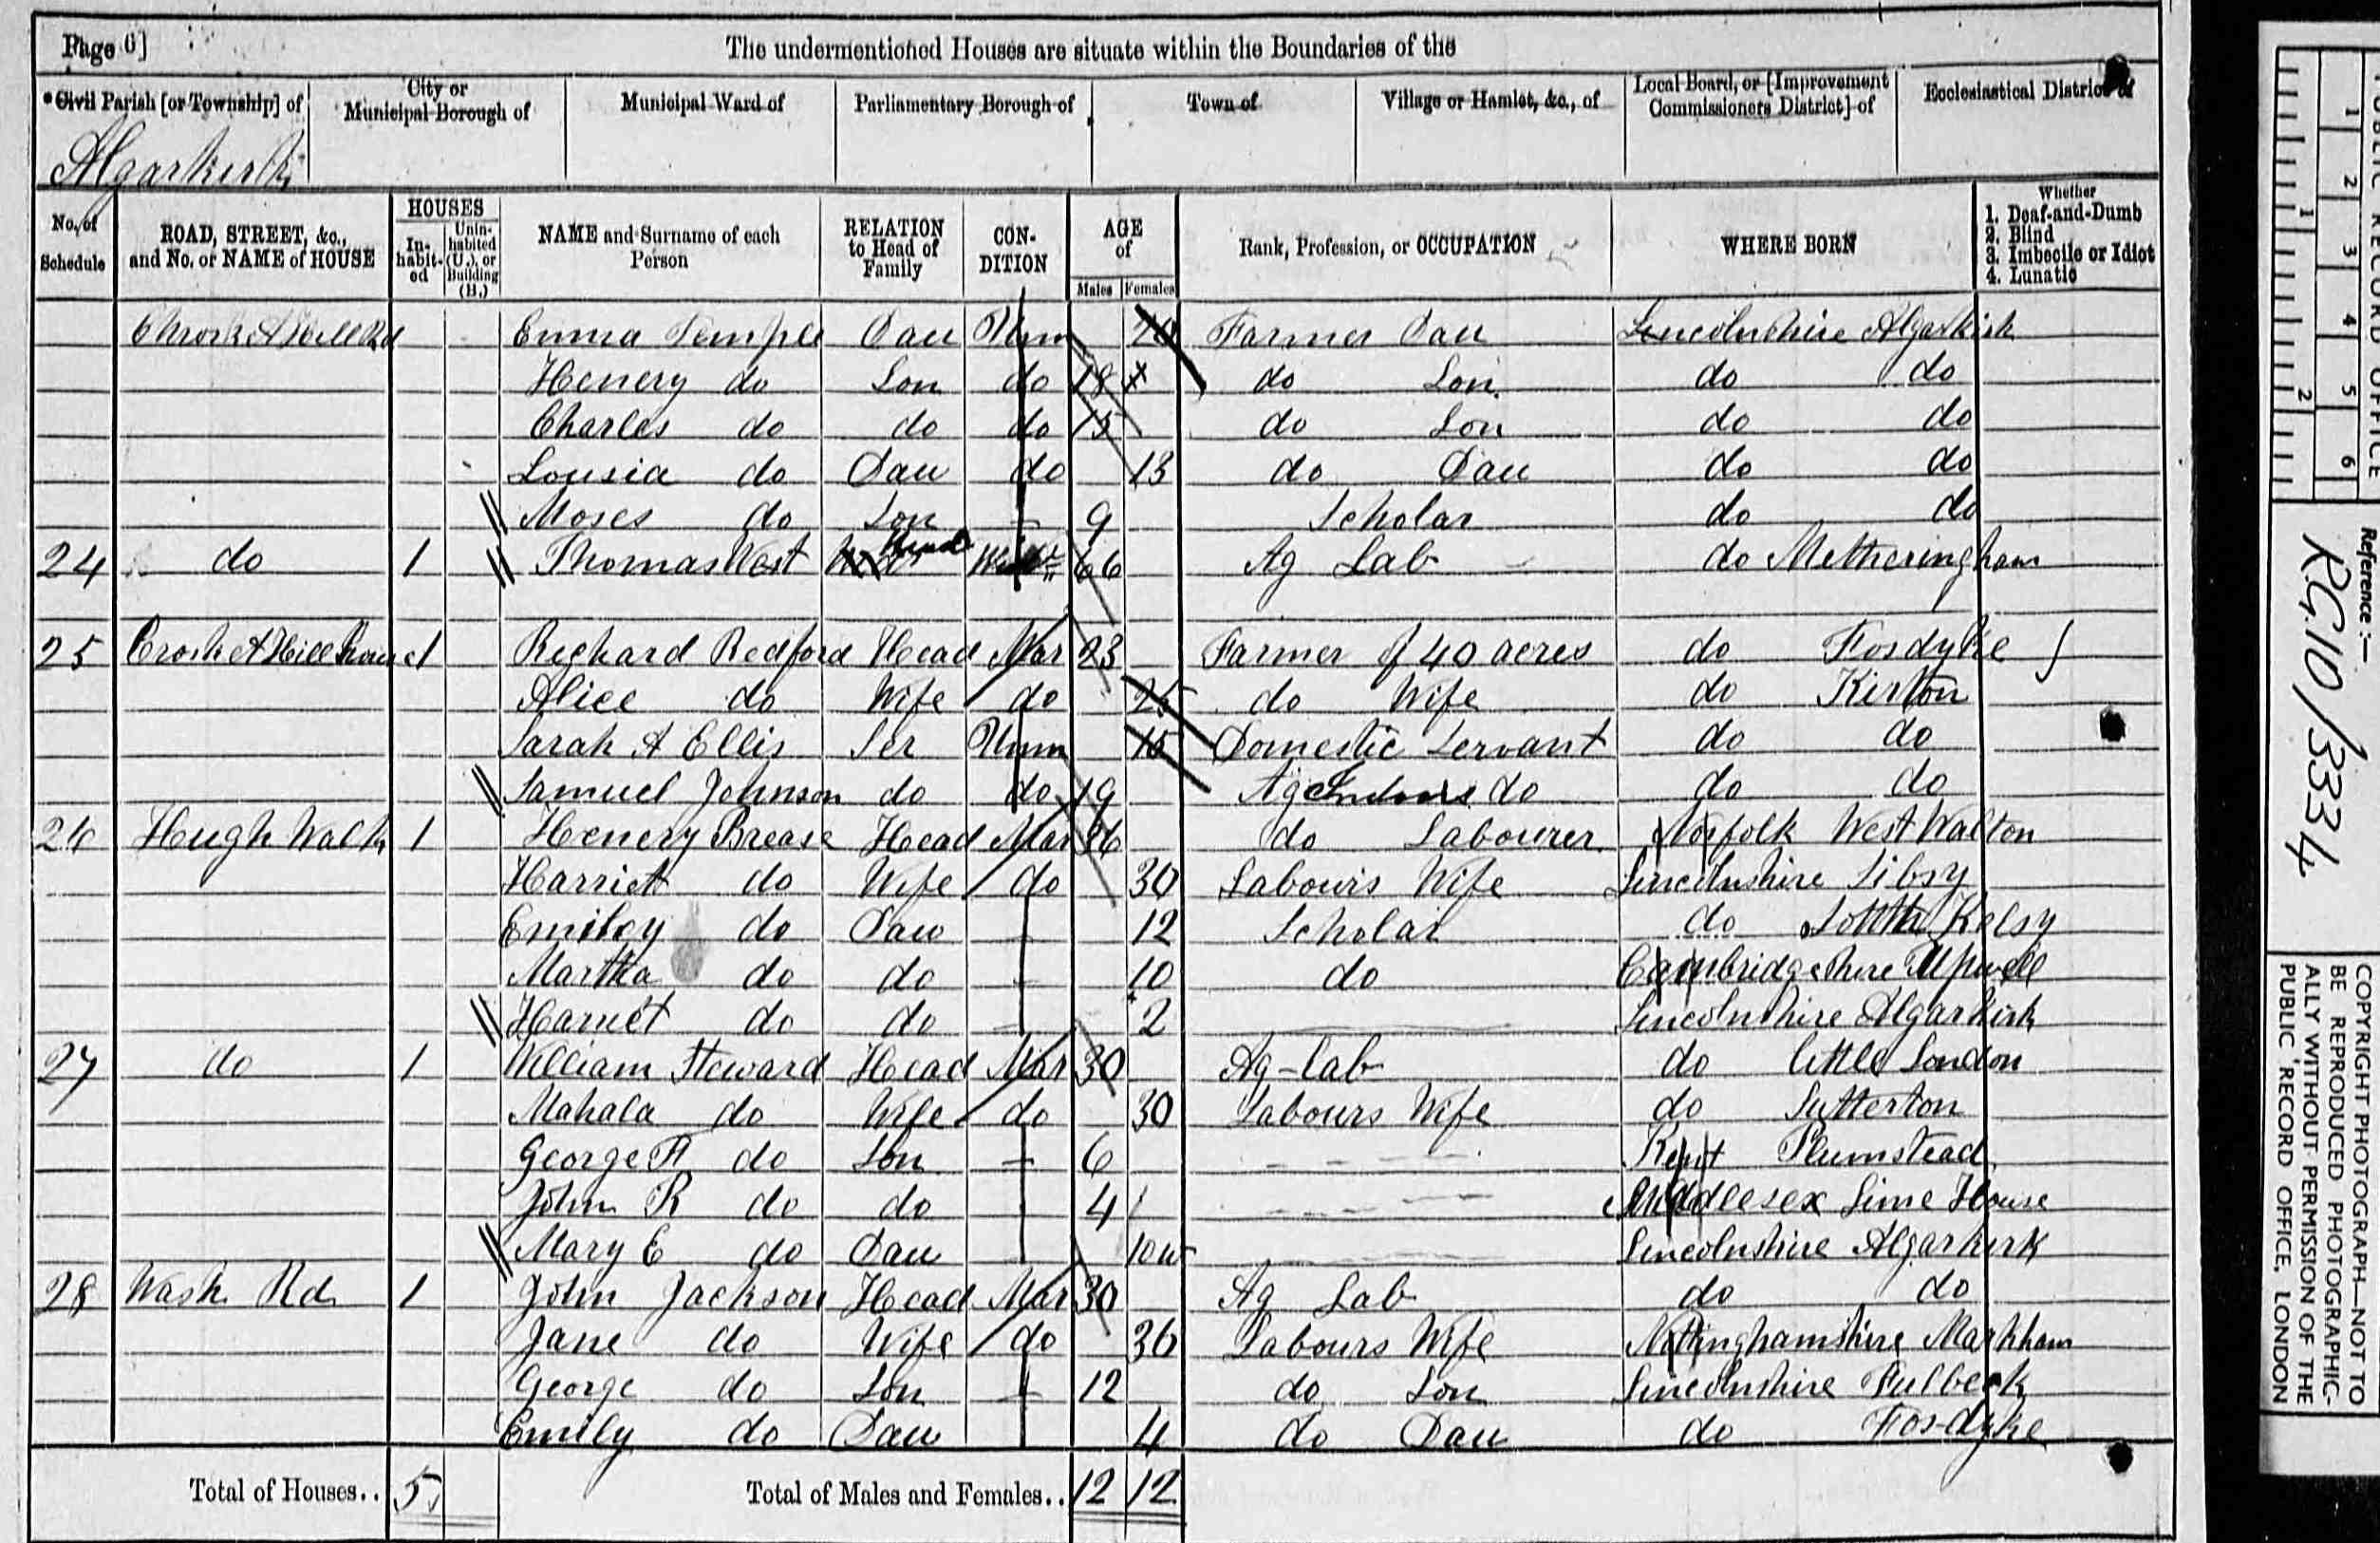 Page 6]
The undermentioned Houses are situate within the Boundaries of the
Civil Parish [or Township] of City or Municipal Borough of Municipal Ward of Parliamentary Borough of Town of Village or Hamlet, &c., of Local Board, or [Improvement Commissioners District] of Ecclesiastical District of
Algarkirk
No. of Schedule ROAD, STREET, &c., and No. or NAME of HOUSE HOUSES In-habit-ed Unin-habited (U.), or Building (B.) NAME and Surname of each Person RELATION to Head of Family CON-DITION AGE of Males Females Rank, Profession, or OCCUPATION WHERE BORN Whether 1. Deaf-and-Dumb 2. Blind 3. Imbecile or Idiot 4. Lunatic
Emma Temple Dau Unm 20 Farmer Dau Lincolnshire Algarkirk
Henery do Son do 18 do Son do do
Charles do do do 15 do Son do do
Lousia do Dau do 13 do Dau do do
Moses do Son 9 Scholar do do
24 do 1 Thomas West Head 66 Ag Lab do Metheringham
25 1 Richard Redford Head Mar 23 Farmer of 40 acres do Fosdyke
Alice do Wife do 25 do Wife do Kirton
Sarah A Ellis Ser Unm 15 Domestic Servant do do
Samuel Johnson do do 19 Ag Indoors do do do
26 Hugh Walk 1 Henery Brease Head Mar 36 do Labourer Norfolk West Walton
Harriet do Wife do 30 Labours Wife Lincolnshire Sibsy
Emiley do Dau 12 Scholar do South Kelsy
Martha do do 10 do Cambridgeshire Upwell
Harriet do do 2 Lincolnshire Algarkirk
27 do 1 William Steward Head Mar 30 Ag-lab do little London
Mahala do Wife do 30 Labours Wife do Sutterton
George F do Son 6 Kent Plumstead
John R do do 4 Middlesex Lime House
Mary E do Dau 10w Lincolnshire Algarkirk
28 Wash Rd 1 John Jackson Head Mar 30 Ag Lab do do
Jane do Wife do 36 Labours Wife Nottinghamshire Markham
George do Son 12 do Son Lincolnshire Fulbeck
Emily do Dau 4 do Dau do Fosdyke
Total of Houses.. 5 Total of Males and Females.. 12 12
1 2 3 4 5 6
1 2
PUBLIC RECORD OFFICE
Reference:-
RG10/3334
COPYRIGHT PHOTOGRAPH—NOT TO
BE REPRODUCED PHOTOGRAPHIC-
ALLY WITHOUT PERMISSION OF THE
PUBLIC RECORD OFFICE, LONDON